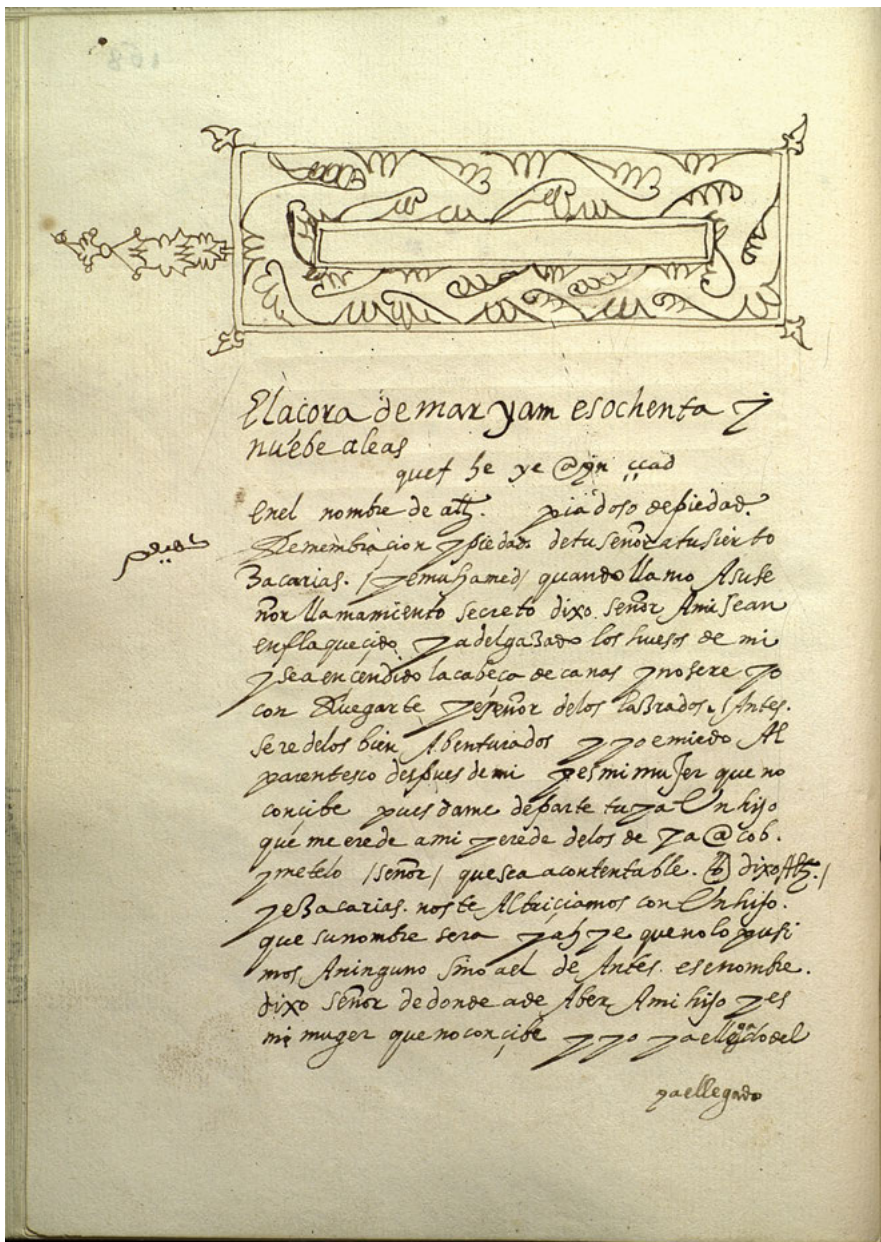 Elaçora de mar yam es ochenta y
nuebe aleas
quef he ye @yn ççad
enel nombre de allh. piadoso de piedad.
Rremembraçion y piedad de tu señor a tu sierbo
Zacarias. / ye muhamed / quando llamo A su se
ñor llamamiento secreto dixo. señor A mi se an
enflaqueçido y adelgazado los huesos de mi
y se a ençendido la cabeça de canas y no sere yo
con Rruegarte ye señor delos lazrados. / Antes.
sere delos bien Abenturados y yo e miedo Al
parentesco despues de mi y es mi mujer que no
conçibe pues dame de parte tuya Un hijo
que me erede a mi y erede delos de ya@cob.
y metelo / señor / que sea acontentable. dixo Allh. /
ye Zacarias. nos te Albriçiamos con Un hijo.
que su nombre sera yahye que no lo pusi
mos A ninguno sino a el de Antes. ese nombre.
dixo señor de donde a de Aber A mi hijo y es
mi muger que no conçibe y yo ya e llegado del
ya e llegado